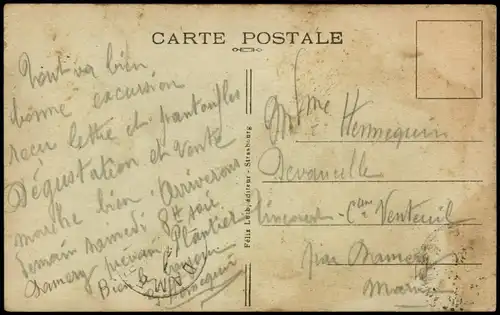 CARTE POSTALE
Tout va bien
bonne excursion
reçu lettre et pantoufles
Dégustation et vente
marche bien. Arriverons
demain samedi 8h soir.
Damery prévenir Plantier
Bien
Hennequin
Félix Luib, éditeur - Strasbourg
Mme Hennequin
Devauselle
Tincourt - Cne Venteuil
par Damery
Marne